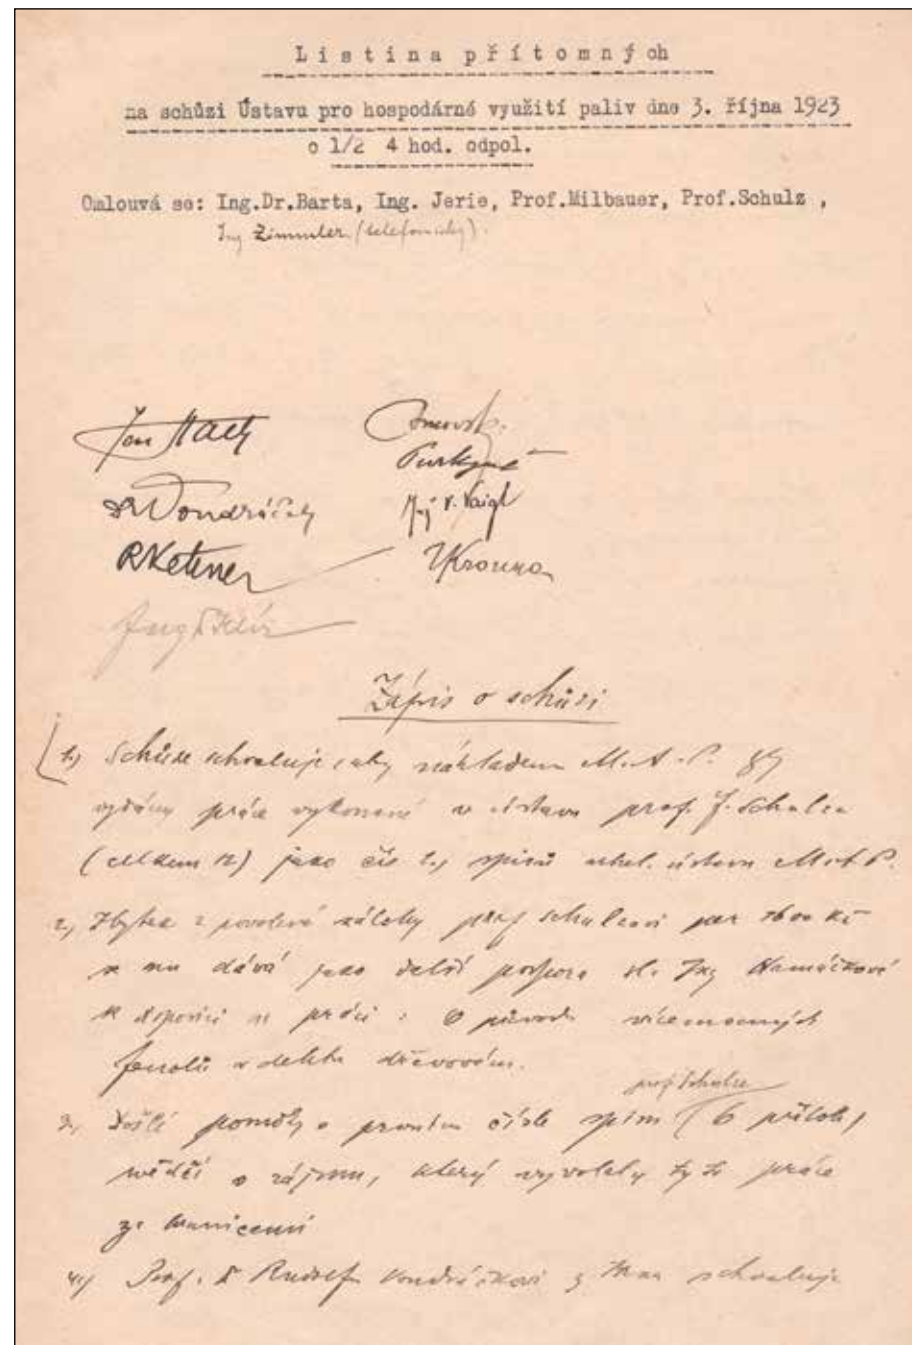 Listina přítomných
na schůzi Ústavu pro hospodárné využití paliv dne 3. října 1923
o 1/2 4 hod. odpol.
Omlouvá se: Ing.Dr.Barta, Ing. Jerie, Prof.Milbauer, Prof.Schulz ,
Ing Zimmler (telefonicky).
Jan Stach
Purkyně
Dr Vondráček
Ing V. Vaigl
R Kettner
Zápis o schůzi
1.) Schůze schvaluje, aby nákladem M.A.P.
vydány práce vykonané v ústavu prof. J. Schulze
(celkem 12) jako čís 2.) spisů uhel. ústavu M.A.P.
2.) Zbytek z povolené zálohy prof Schulzovi per 1600 Kč
se mu dává jako další podpora sl. Ing Hamáčkové
k disposici na práci: O původu vícemocných
fenolů v dehtu dřevovém.
prof Schulze
3.) Došlé posudky o prvním čísle spisů (6 příloh)
svědčí o zájmu, který vyvolaly tyto práce
za hranicemi
4.) Prof. Dr Rudolfu Vondráčkovi z Brna schvaluje